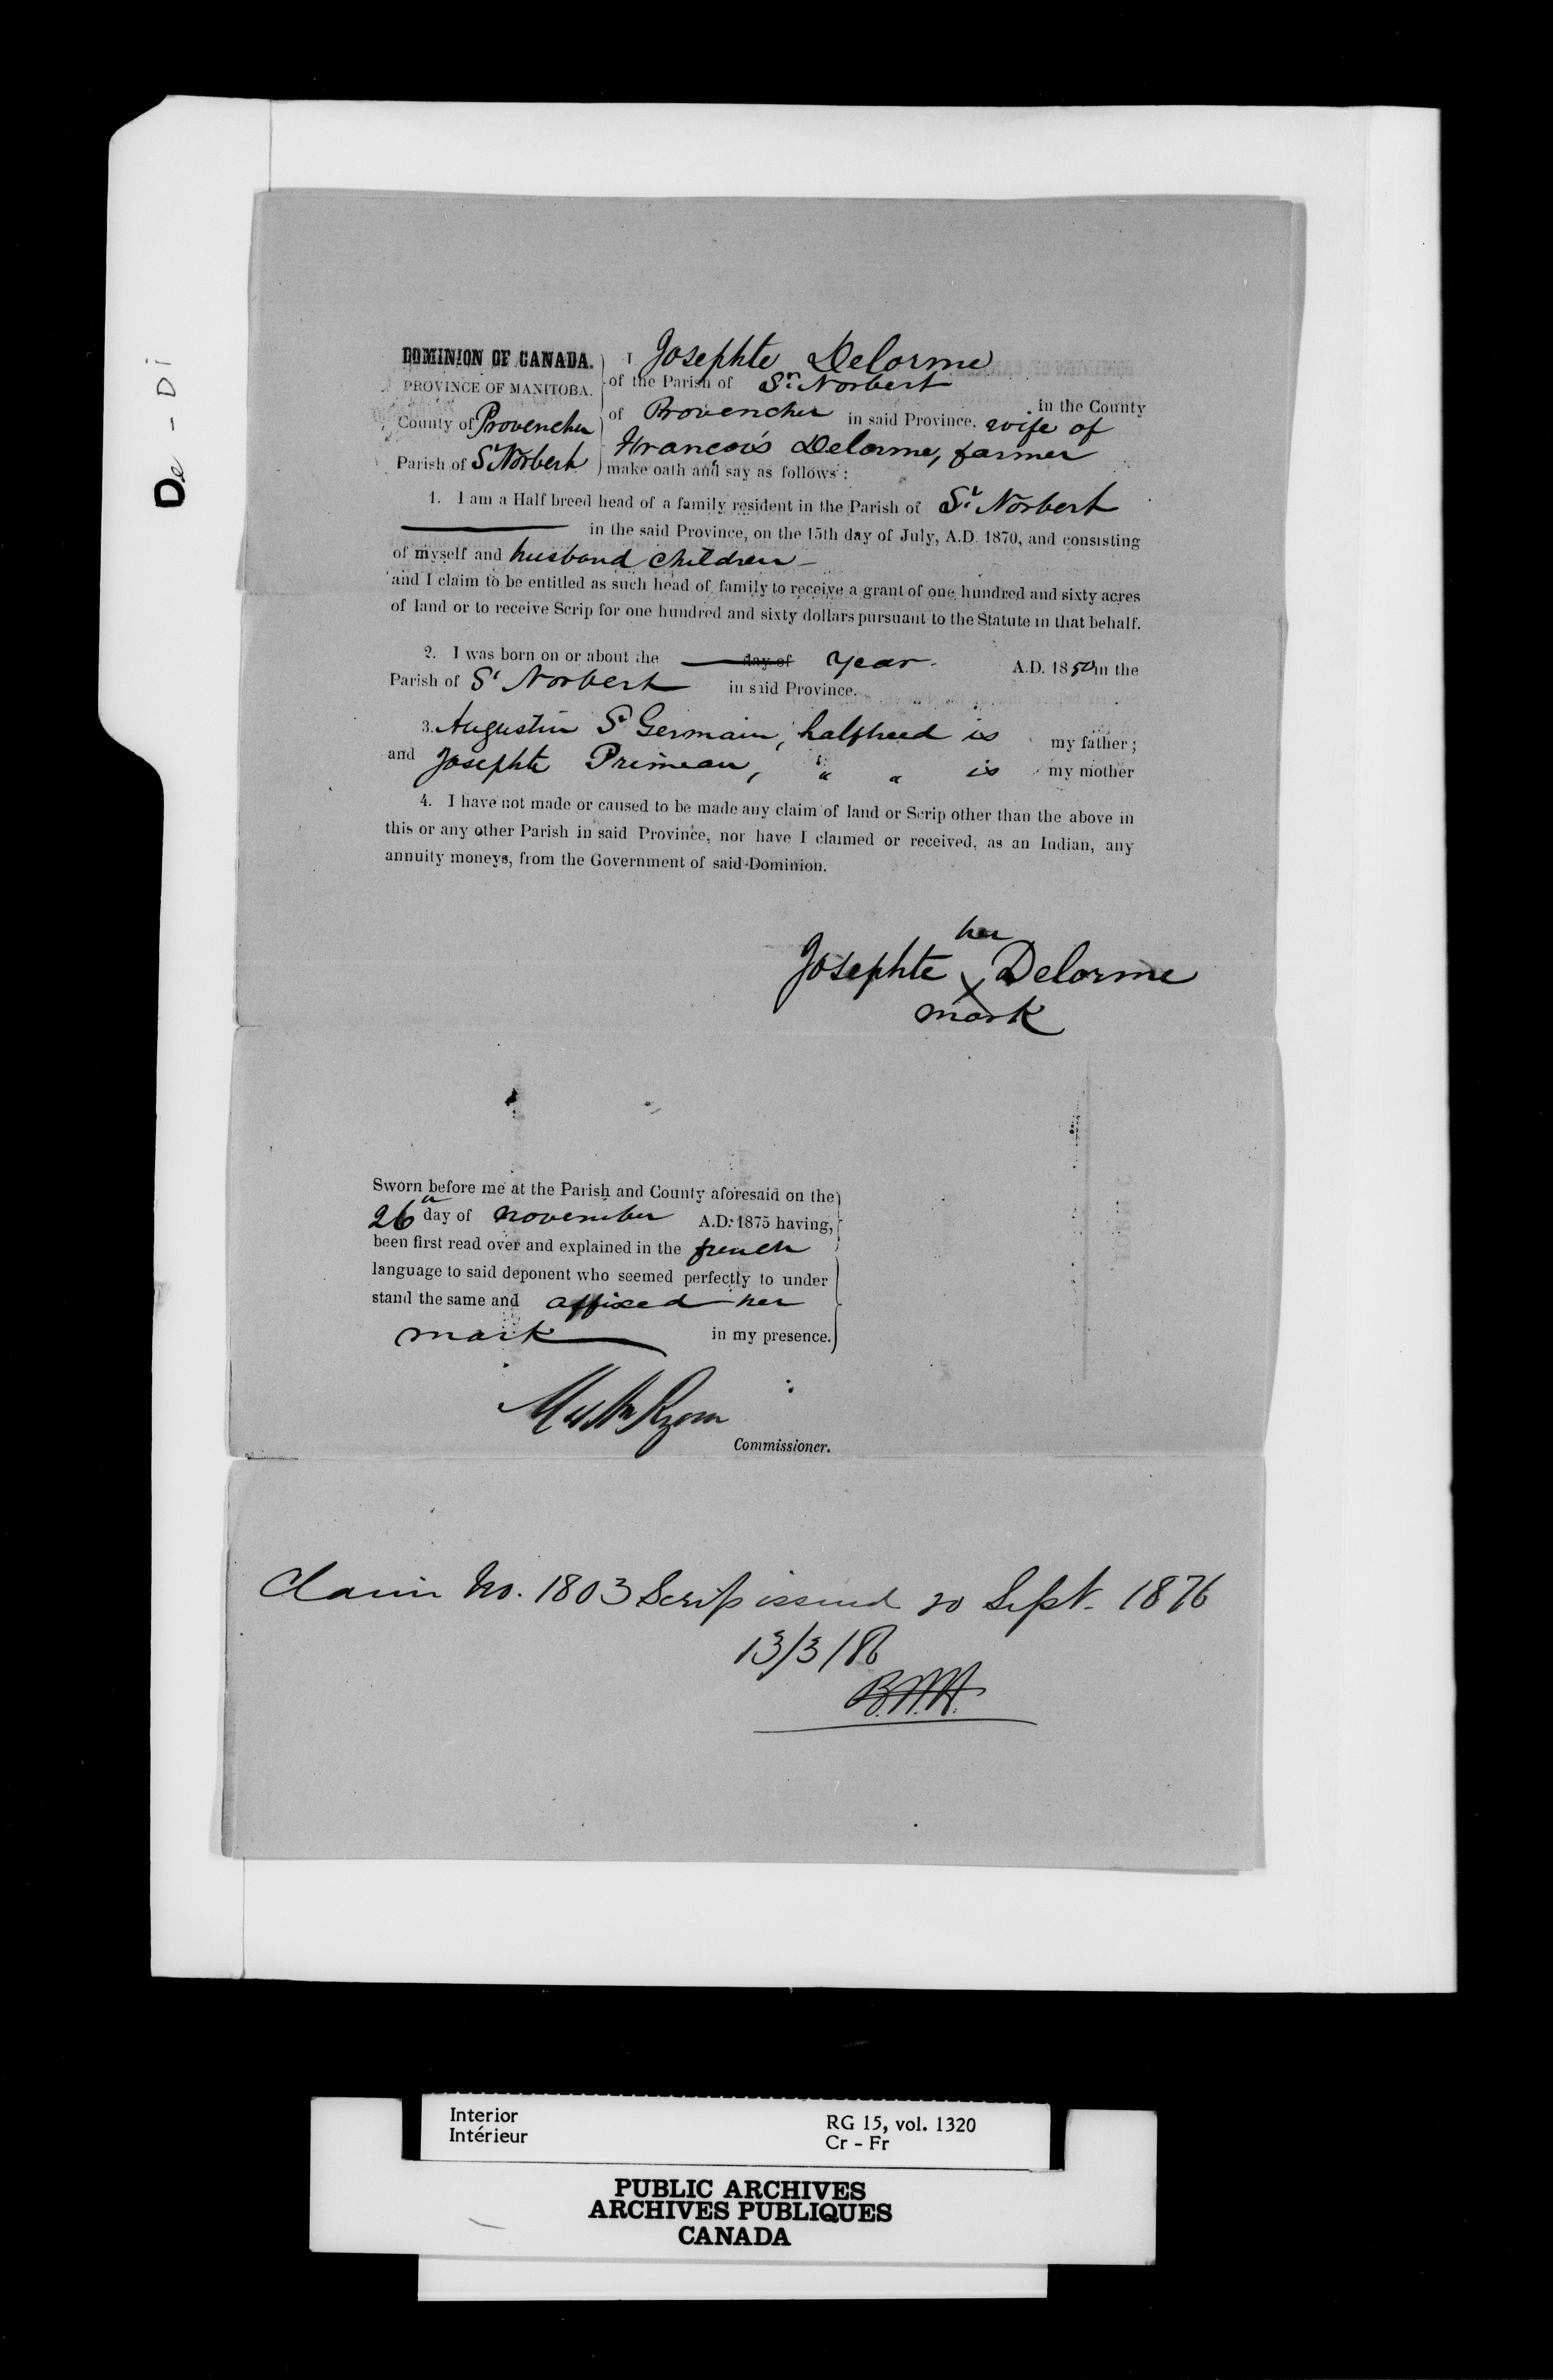 De - Di
DOMINION OF CANADA.
PROVINCE OF MANITOBA.
County of Provencher
Parish of St Norbert
I Josephte Delorme
of the Parish of St. Norbert
in the County
of Provencher in said Province, wife of
Francois Delorme, farmer
make oath and say as follows:
1. I am a Half breed head of a family resident in the Parish of St. Norbert
in the said Province, on the 15th day of July, A.D. 1870, and consisting
of myself and husband children
and I claim to be entitled as such head of family to receive a grant of one hundred and sixty acres
of land or to receive Scrip for one hundred and sixty dollars pursuant to the Statute in that behalf.
2. I was born on or about the day of year. A.D. 1850 in the
Parish of St Norbert in said Province.
3. Augustin St Germain, halfbreed is my father;
and Josephte Primeau, " " is my mother
4. I have not made or caused to be made any claim of land or Scrip other than the above in
this or any other Parish in said Province, nor have I claimed or received, as an Indian, any
annuity moneys, from the Government of said Dominion.
her
Josephte x Delorme
mark
Sworn before me at the Parish and County aforesaid on the
26th day of November A.D. 1875 having,
been first read over and explained in the french
language to said deponent who seemed perfectly to under
stand the same and affixed her
mark in my presence.
Ryan
Commissioner.
Claim No. 1803 Scrip issued 20 Sept. 1876
13/3/86
Interior
Intérieur
RG 15, vol. 1320
Cr - Fr
PUBLIC ARCHIVES
ARCHIVES PUBLIQUES
CANADA